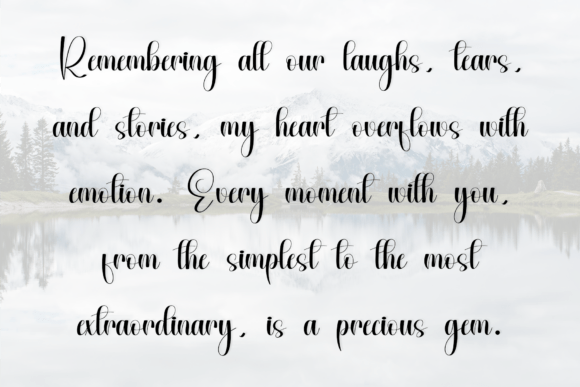 Remembering all our laughs, tears,
and stories, my heart overflows with
emotion. Every moment with you,
from the simplest to the most
extraordinary, is a precious gem.